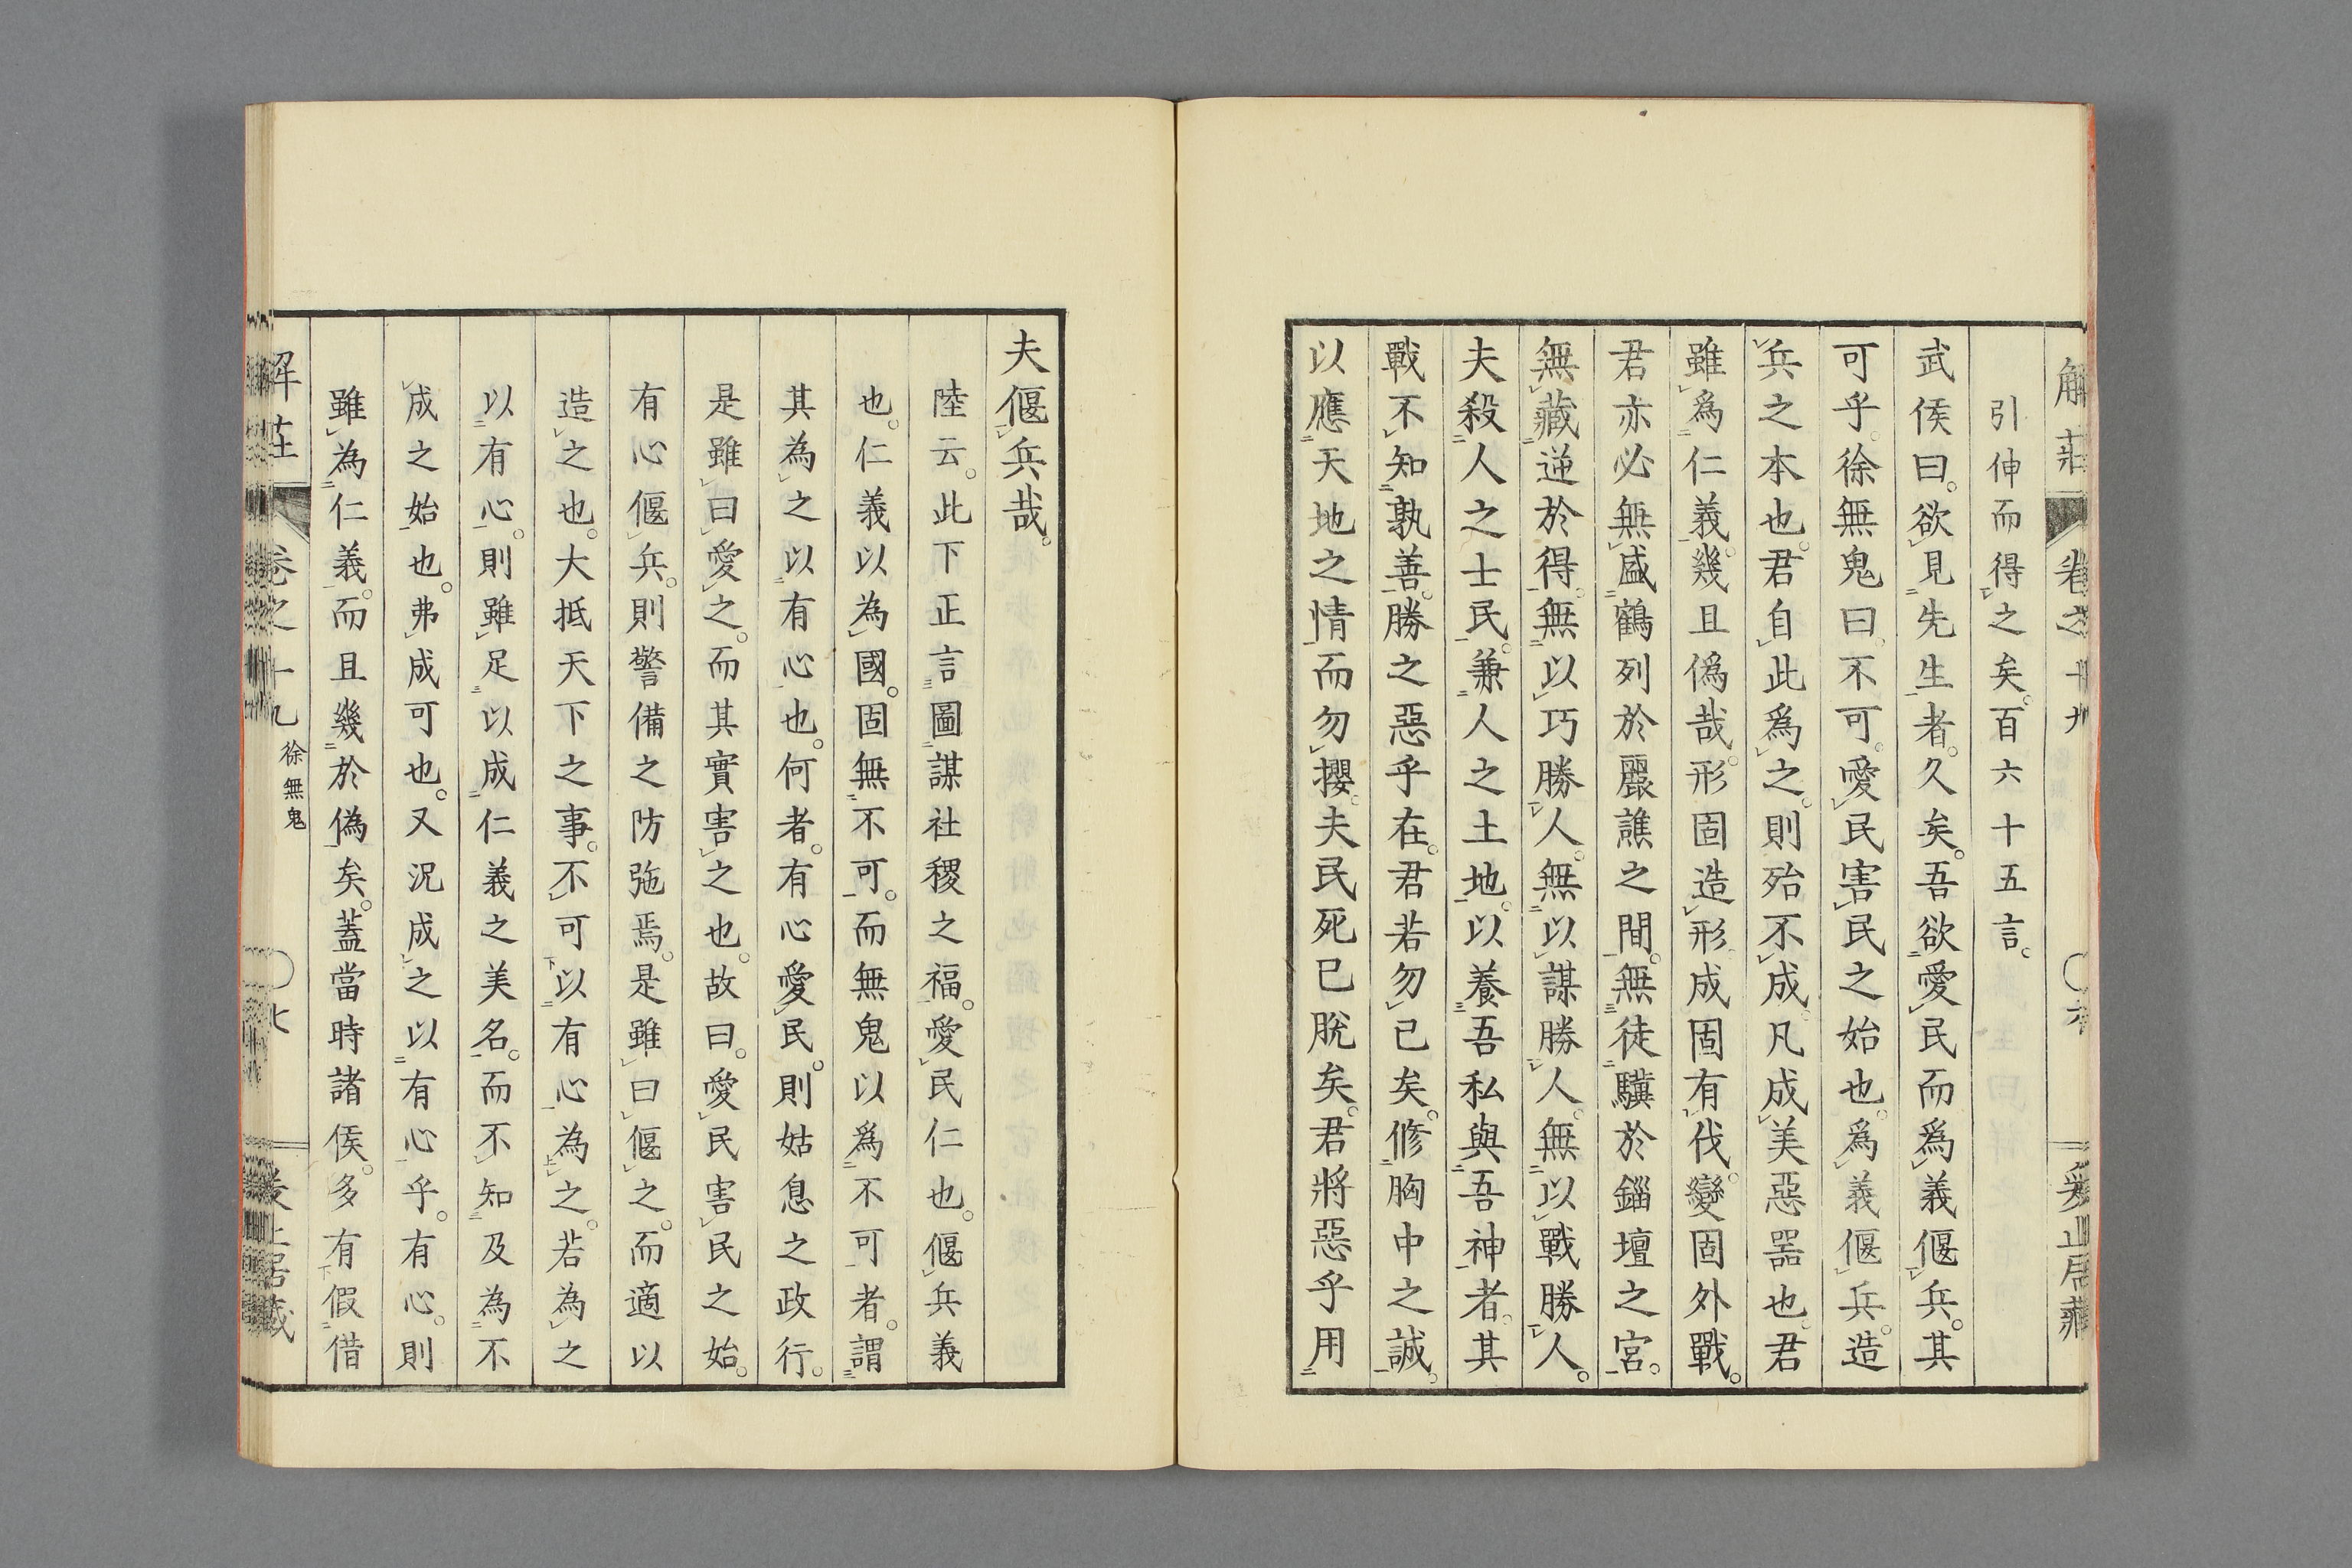 解莊 卷之十九 六 爰止居藏
引伸而得之矣。百六十五言。
武侯曰。欲見先生者。久矣。吾欲愛民而爲義偃兵。其
可乎。徐無鬼曰。不可。愛民害民之始也。爲義偃兵。造
兵之本也。君自此爲之。則殆不成。凡成美惡噐也。君
雖爲仁義。幾且僞哉。形固造形。成固有伐。變固外戰。
君亦必無盛鶴列於麗譙之間。無徒驥於錙壇之宮。
無藏逆於得。無以巧勝人。無以謀勝人。無以戰勝人。
夫殺人之士民。兼人之土地。以養吾私與吾神者。其
戰不知孰善。勝之惡乎在。君若勿已矣。修胸中之誠。
以應天地之情而勿攖。夫民死已脫矣。君將惡乎用
夫偃兵哉。
陸云。此下正言圖謀社稷之福。愛民仁也。偃兵義
也。仁義以為國。固無不可。而無鬼以爲不可者。謂
其為之以有心也。何者。有心愛民。則姑息之政行。
是雖曰愛之。而其實害之也。故曰。愛民害民之始。
有心偃兵。則警備之防弛焉。是雖曰偃之。而適以
造之也。大抵天下之事。不可以有心為之。若為之
以有心。則雖足以成仁義之美名。而不知及為不
成之始也。弗成可也。又況成之以有心乎。有心。則
雖為仁義。而且幾於偽矣。蓋當時諸侯。多有假借
解莊 卷之十九 徐無鬼 七 爰止居藏